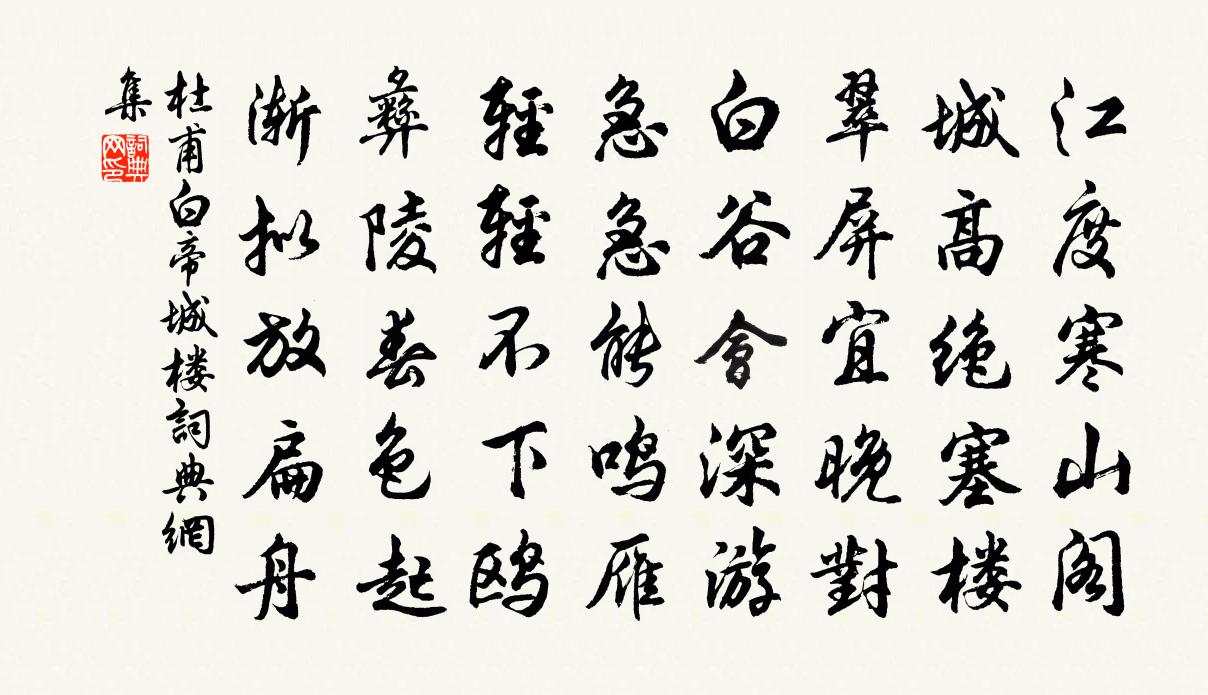 江度寒山阁
城高绝塞楼
翠屏宜晚對
白谷會深游
急急能鸣雁
輕輕不下鸥
彝陵春色起
渐拟放扁舟
杜甫白帝城楼詞典網
集
詞典网印